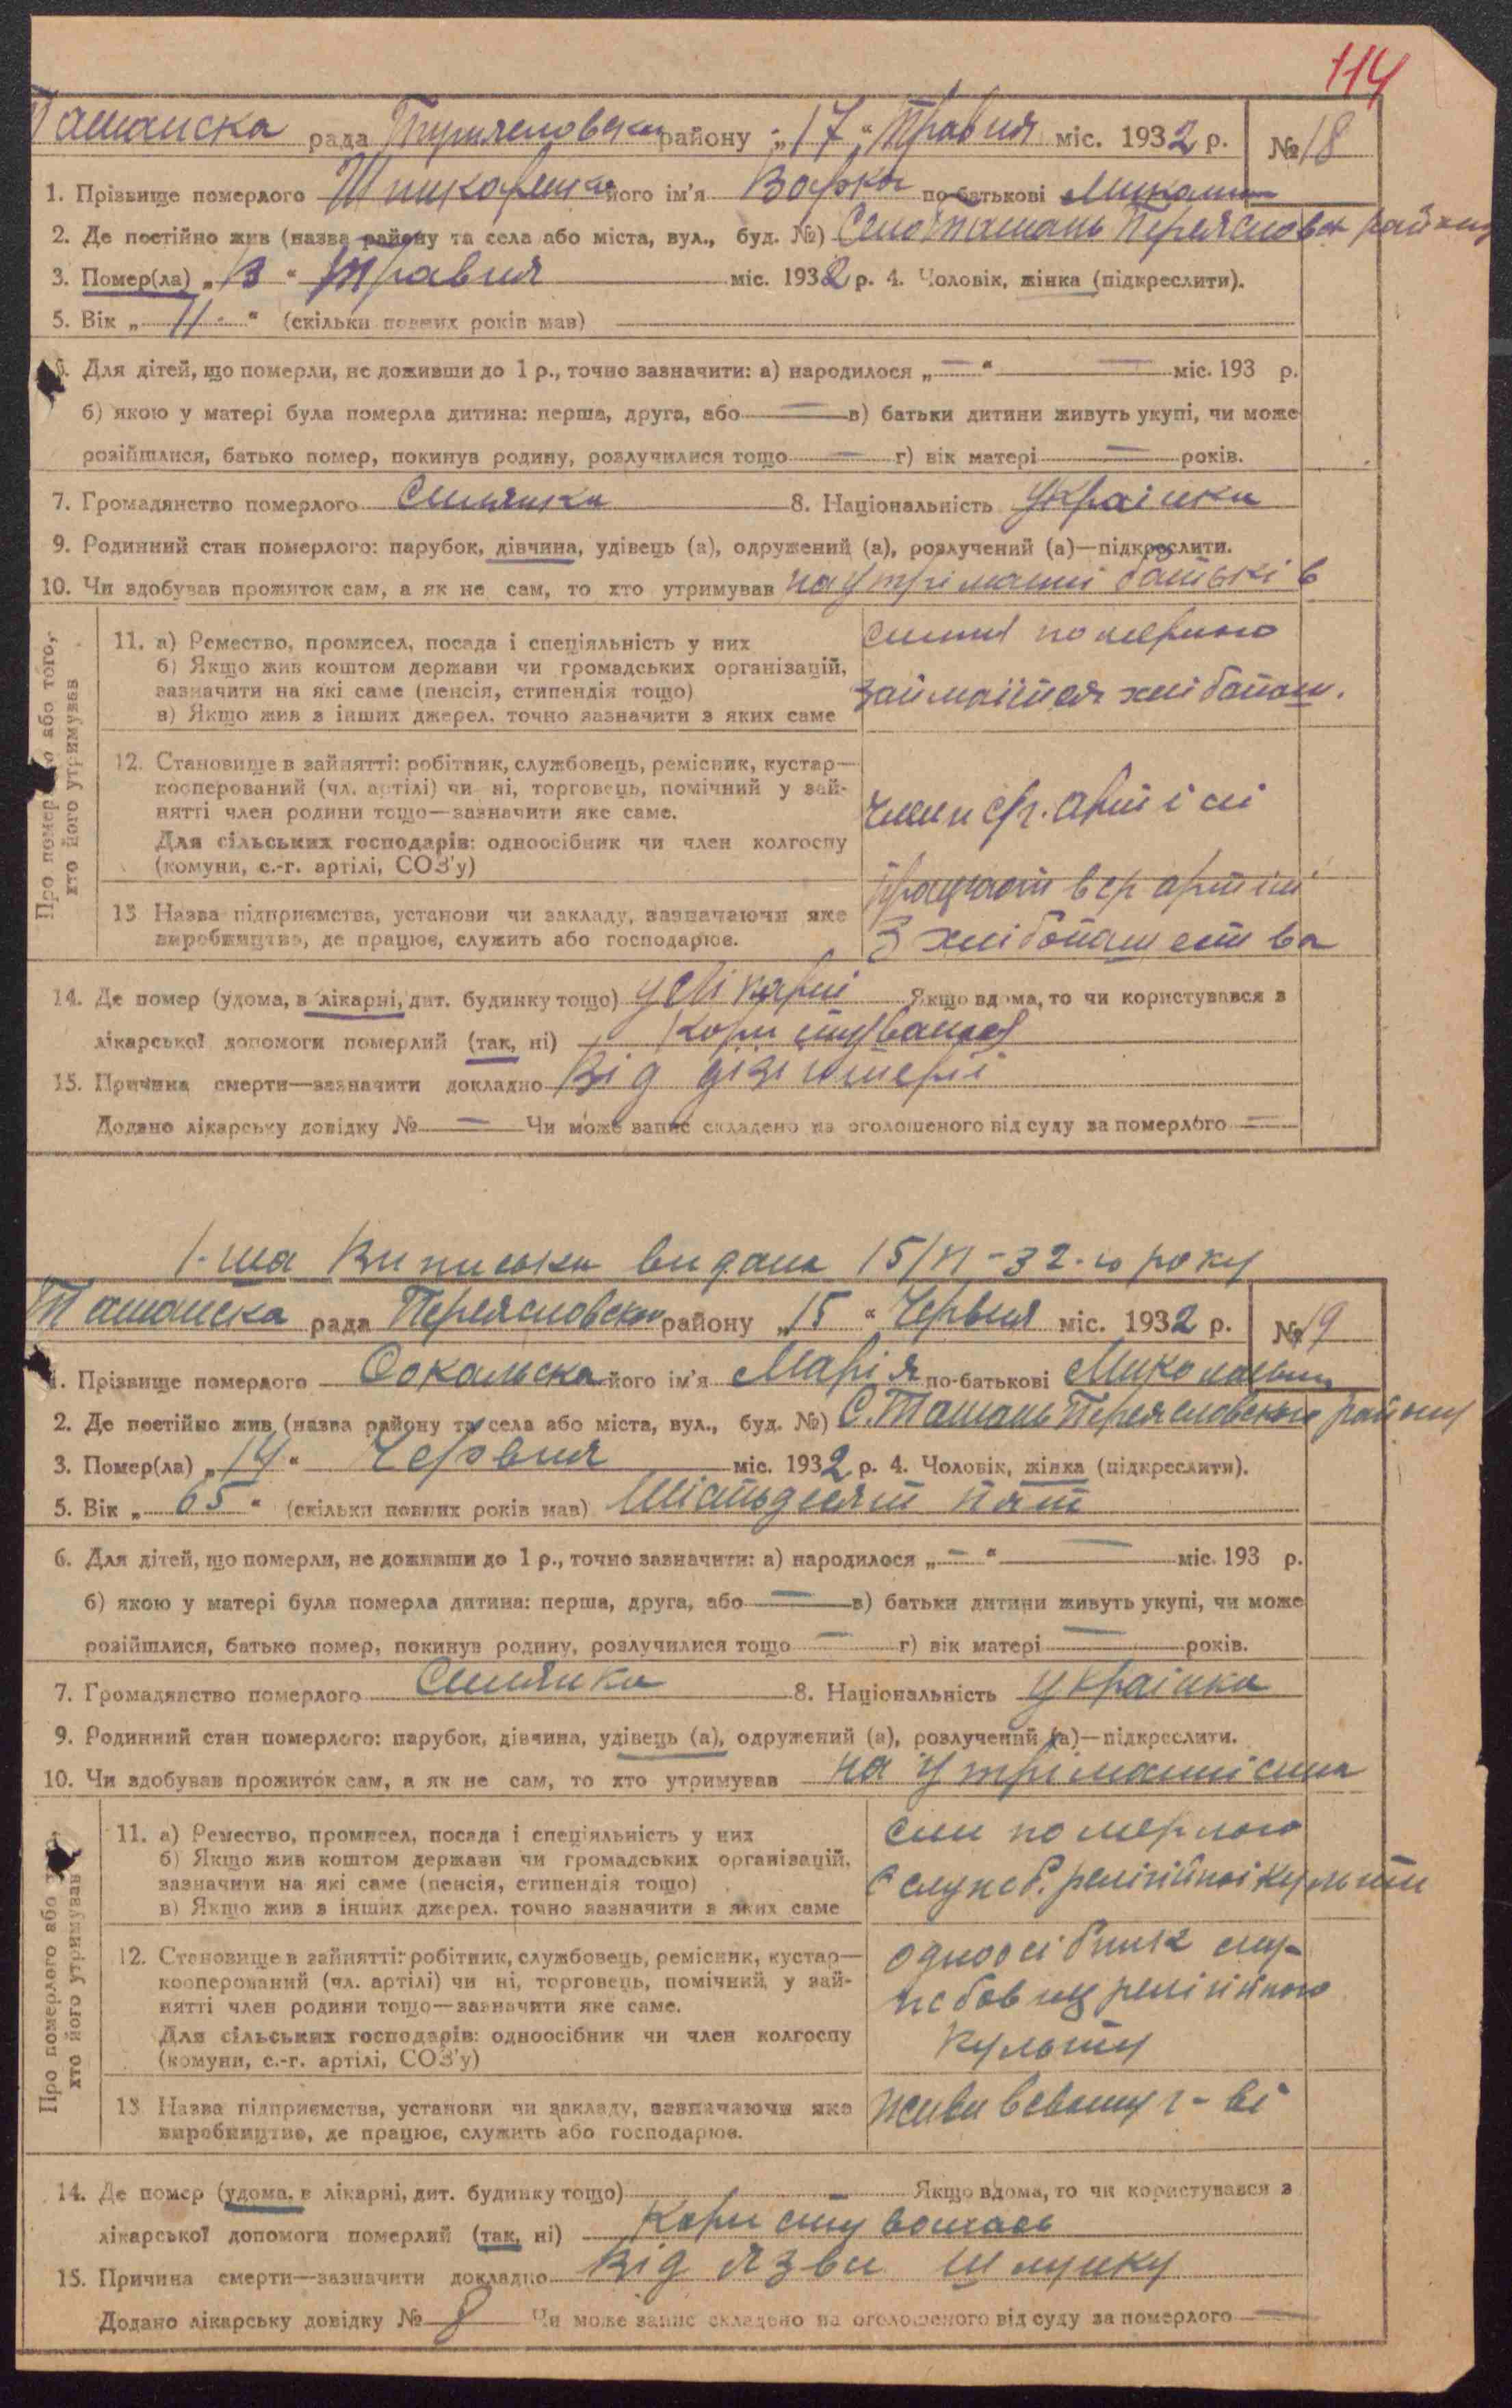 114
Ташанска рада Переясловськ району „17“ Травня міс. 1932 р. № 18
1. Прізвище померлого його ім'я Варка по-батькові
2. Де постійно жив (назва району та села або міста, вул., буд. №) Село Ташань Переясловск району
3. Помер(ла) „13“ Травня міс. 1932 р. 4. Чоловік, жінка (підкреслити).
5. Вік „11“ (скільки повних років мав)
6. Для дітей, що померли, не доживши до 1 р., точно зазначити: а) народилося „—“ — міс. 193 р.
б) якою у матері була померла дитина: перша, друга, або — в) батьки дитини живуть укупі, чи може
розійшлися, батько помер, покинув родину, розлучилися тощо — г) вік матері — років.
7. Громадянство померлого Силянка 8. Національність Українка
9. Родинний стан померлого: парубок, дівчина, удівець (а), одружений (а), розлучений (а)—підкреслити.
10. Чи здобував прожиток сам, а як не сам, то хто утримував на утріманні батьків
Про померлого або того, хто його утримував
11. а) Ремество, промисел, посада і спеціяльність у них
б) Якщо жив коштом держави чи громадських організацій,
зазначити на які саме (пенсія, стипендія тощо)
в) Якщо жив з інших джерел, точно зазначити з яких саме
померлого
займаїтся хлібопаш.
12. Становище в зайнятті: робітник, службовець, ремісник, кустар—
кооперований (чл. артілі) чи ні, торговець, помічний у зай-
нятті член родини тощо—зазначити яке саме.
Для сільських господарів: одноосібник чи член колгоспу
(комуни, с.-г. артілі, СОЗ'у)
член с/г. артілі
13 Назва підприємства, установи чи закладу, зазначаючи яке
виробництво, де працює, служить або господарює.
в с/г артілі
З хлібопашества
14. Де помер (удома, в лікарні, дит. будинку тощо) у лікарні Якщо вдома, то чи користувався з
лікарської допомоги померлий (так, ні) Користувалася
15. Причина смерти—зазначити докладно Від
Додано лікарську довідку № — Чи може запис складено на оголошеного від суду за померлого —
1-ша Виписька видана 15/VI-32-го року
Ташанска рада Переясловськ району „15“ Червня міс. 1932 р. № 19
1. Прізвище померлого Сокальска його ім'я Марія по-батькові Миколаевна
2. Де постійно жив (назва району та села або міста, вул., буд. №) С. Ташань Переясловського району
3. Помер(ла) „14“ Червня міс. 1932 р. 4. Чоловік, жінка (підкреслити).
5. Вік „65“ (скільки повних років мав) Шістьдесят пят
6. Для дітей, що померли, не доживши до 1 р., точно зазначити: а) народилося „—“ — міс. 193 р.
б) якою у матері була померла дитина: перша, друга, або — в) батьки дитини живуть укупі, чи може
розійшлися, батько помер, покинув родину, розлучилися тощо — г) вік матері — років.
7. Громадянство померлого Силянка 8. Національність українка
9. Родинний стан померлого: парубок, дівчина, удівець (а), одружений (а), розлучений (а)—підкреслити.
10. Чи здобував прожиток сам, а як не сам, то хто утримував на утріманні сина
Про померлого або того, хто його утримував
11. а) Ремество, промисел, посада і спеціяльність у них
б) Якщо жив коштом держави чи громадських організацій,
зазначити на які саме (пенсія, стипендія тощо)
в) Якщо жив з інших джерел, точно зазначити з яких саме
син померлого
є служб. релігійної культи
12. Становище в зайнятті: робітник, службовець, ремісник, кустар—
кооперований (чл. артілі) чи ні, торговець, помічний у зай-
нятті член родини тощо—зазначити яке саме.
Для сільських господарів: одноосібник чи член колгоспу
(комуни, с.-г. артілі, СОЗ'у)
одноосібник слу-
жбовец релігійного
культу
13 Назва підприємства, установи чи закладу, зазначаючи яке
виробництво, де працює, служить або господарює.
живи в свому г-ві
14. Де помер (удома, в лікарні, дит. будинку тощо) — Якщо вдома, то чи користувався з
лікарської допомоги померлий (так, ні) Користувалась
15. Причина смерти—зазначити докладно Від язви шлунку
Додано лікарську довідку № 8 Чи може запис складено на оголошеного від суду за померлого —